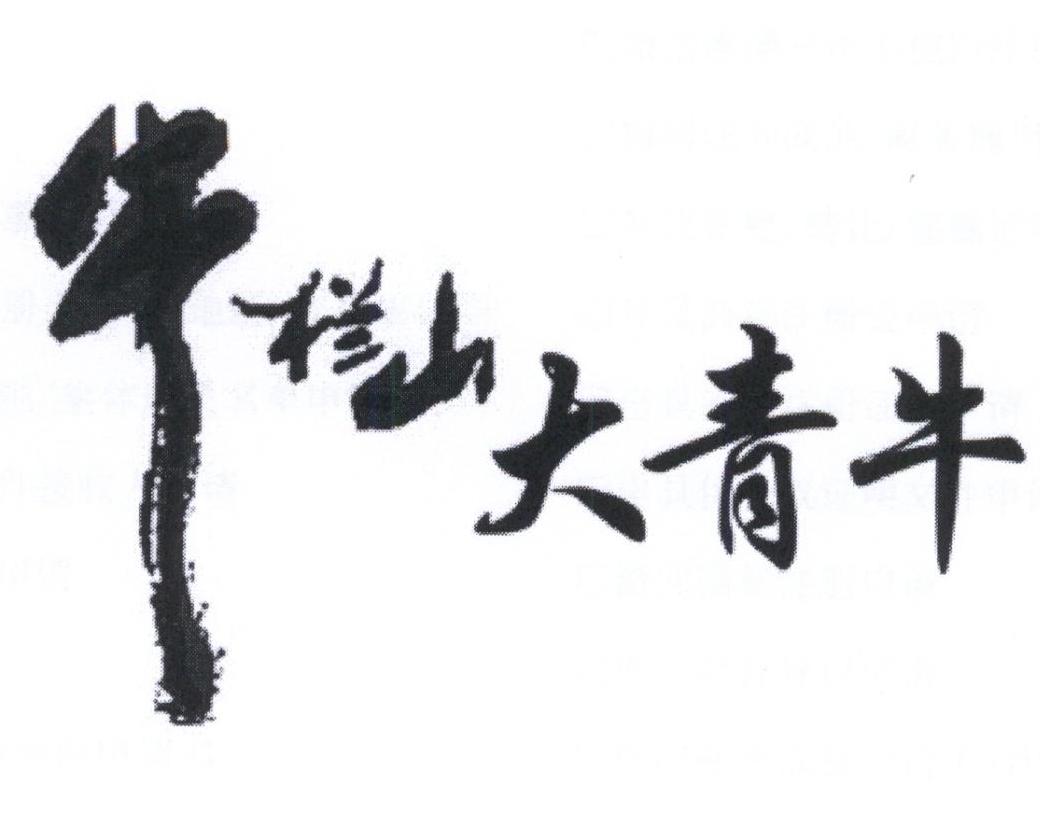 牛栏山大青牛